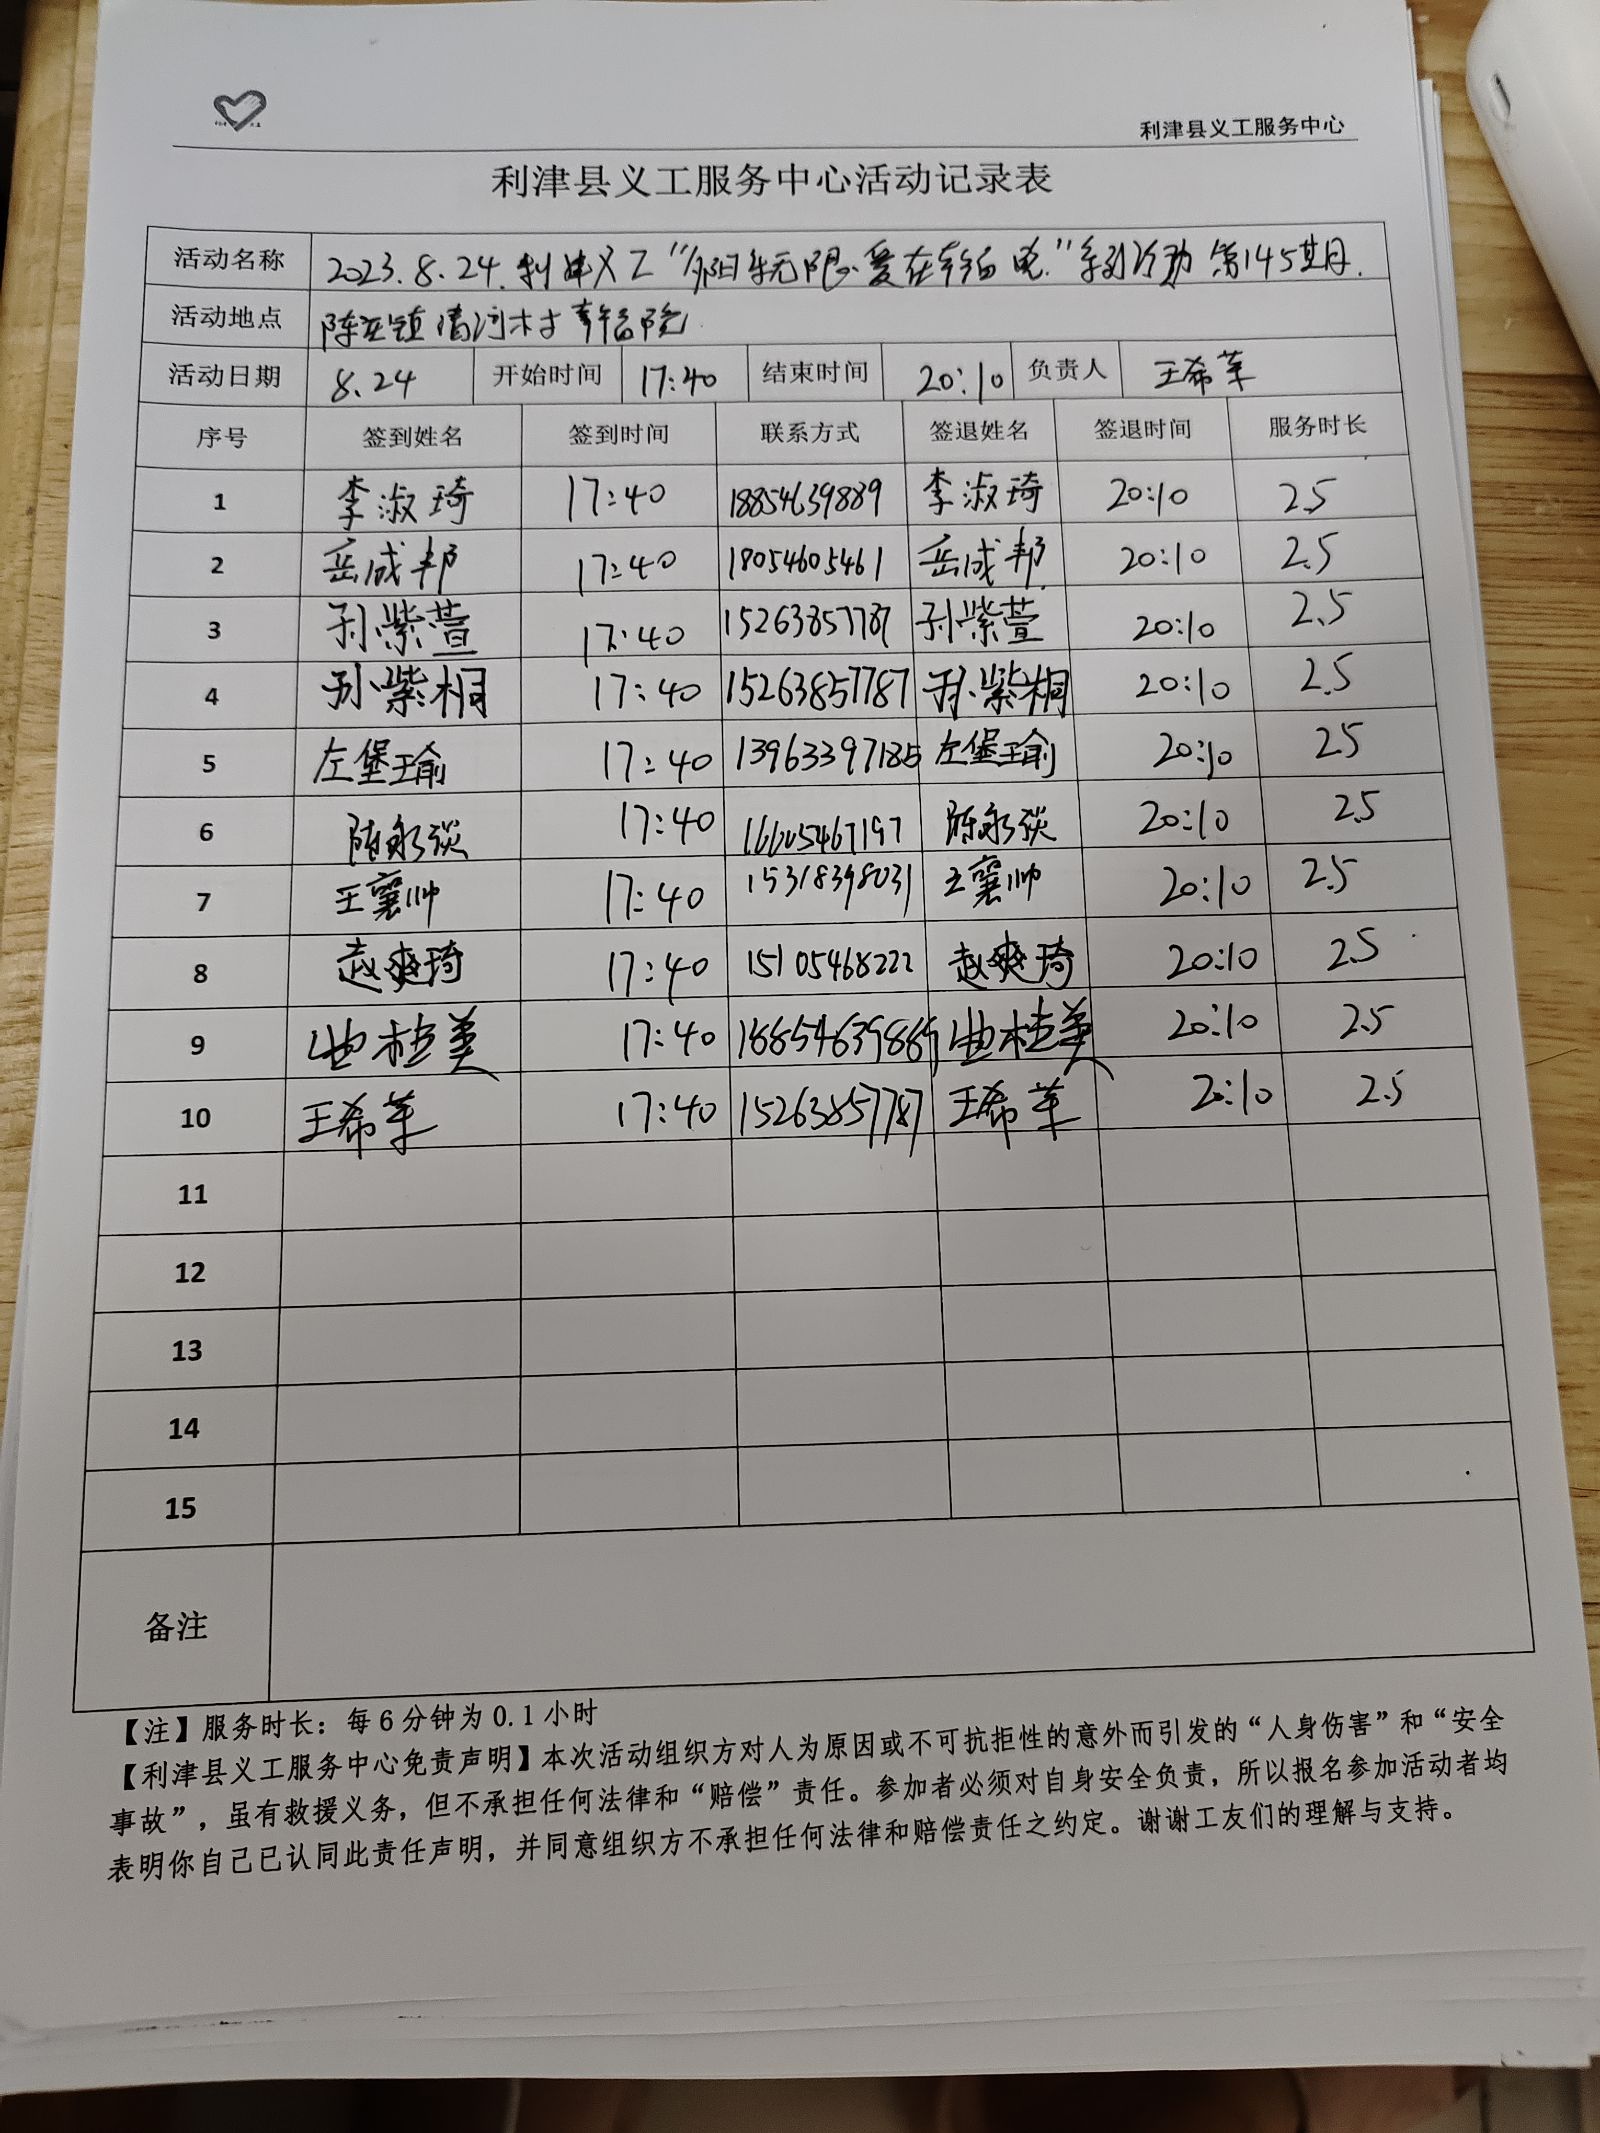 利津县义工服务中心
利津县义工服务中心活动记录表
活动名称 2023.8.24.利津义工“夕阳无限.爱在幸福院”系列活动 第145期.
活动地点 陈庄镇清河村幸福院.
活动日期 8.24 开始时间 17:40 结束时间 20:10 负责人 王希苹
序号 签到姓名 签到时间 联系方式 签退姓名 签退时间 服务时长
1 李淑琦 17:40 18854639889 李淑琦 20:10 2.5
2 岳成邦 17:40 18054605461 岳成邦 20:10 2.5
3 孙紫萱 17:40 15263857787 孙紫萱 20:10 2.5
4 孙紫桐 17:40 15263857787 孙紫桐 20:10 2.5
5 左堡瑜 17:40 13963397185 左堡瑜 20:10 2.5
6 陈永 17:40 16605467197 陈永 20:10 2.5
7 王襄帅 17:40 15318398031 王襄帅 20:10 2.5
8 赵爽琦 17:40 15105468222 赵爽琦 20:10 2.5
9 曲桂美 17:40 18854639889 曲桂美 20:10 2.5
10 王希苹 17:40 15263857787 王希苹 20:10 2.5
11
12
13
14
15
备注
【注】服务时长：每6分钟为0.1小时
【利津县义工服务中心免责声明】本次活动组织方对人为原因或不可抗拒性的意外而引发的“人身伤害”和“安全
事故”，虽有救援义务，但不承担任何法律和“赔偿”责任。参加者必须对自身安全负责，所以报名参加活动者均
表明你自己已认同此责任声明，并同意组织方不承担任何法律和赔偿责任之约定。谢谢工友们的理解与支持。